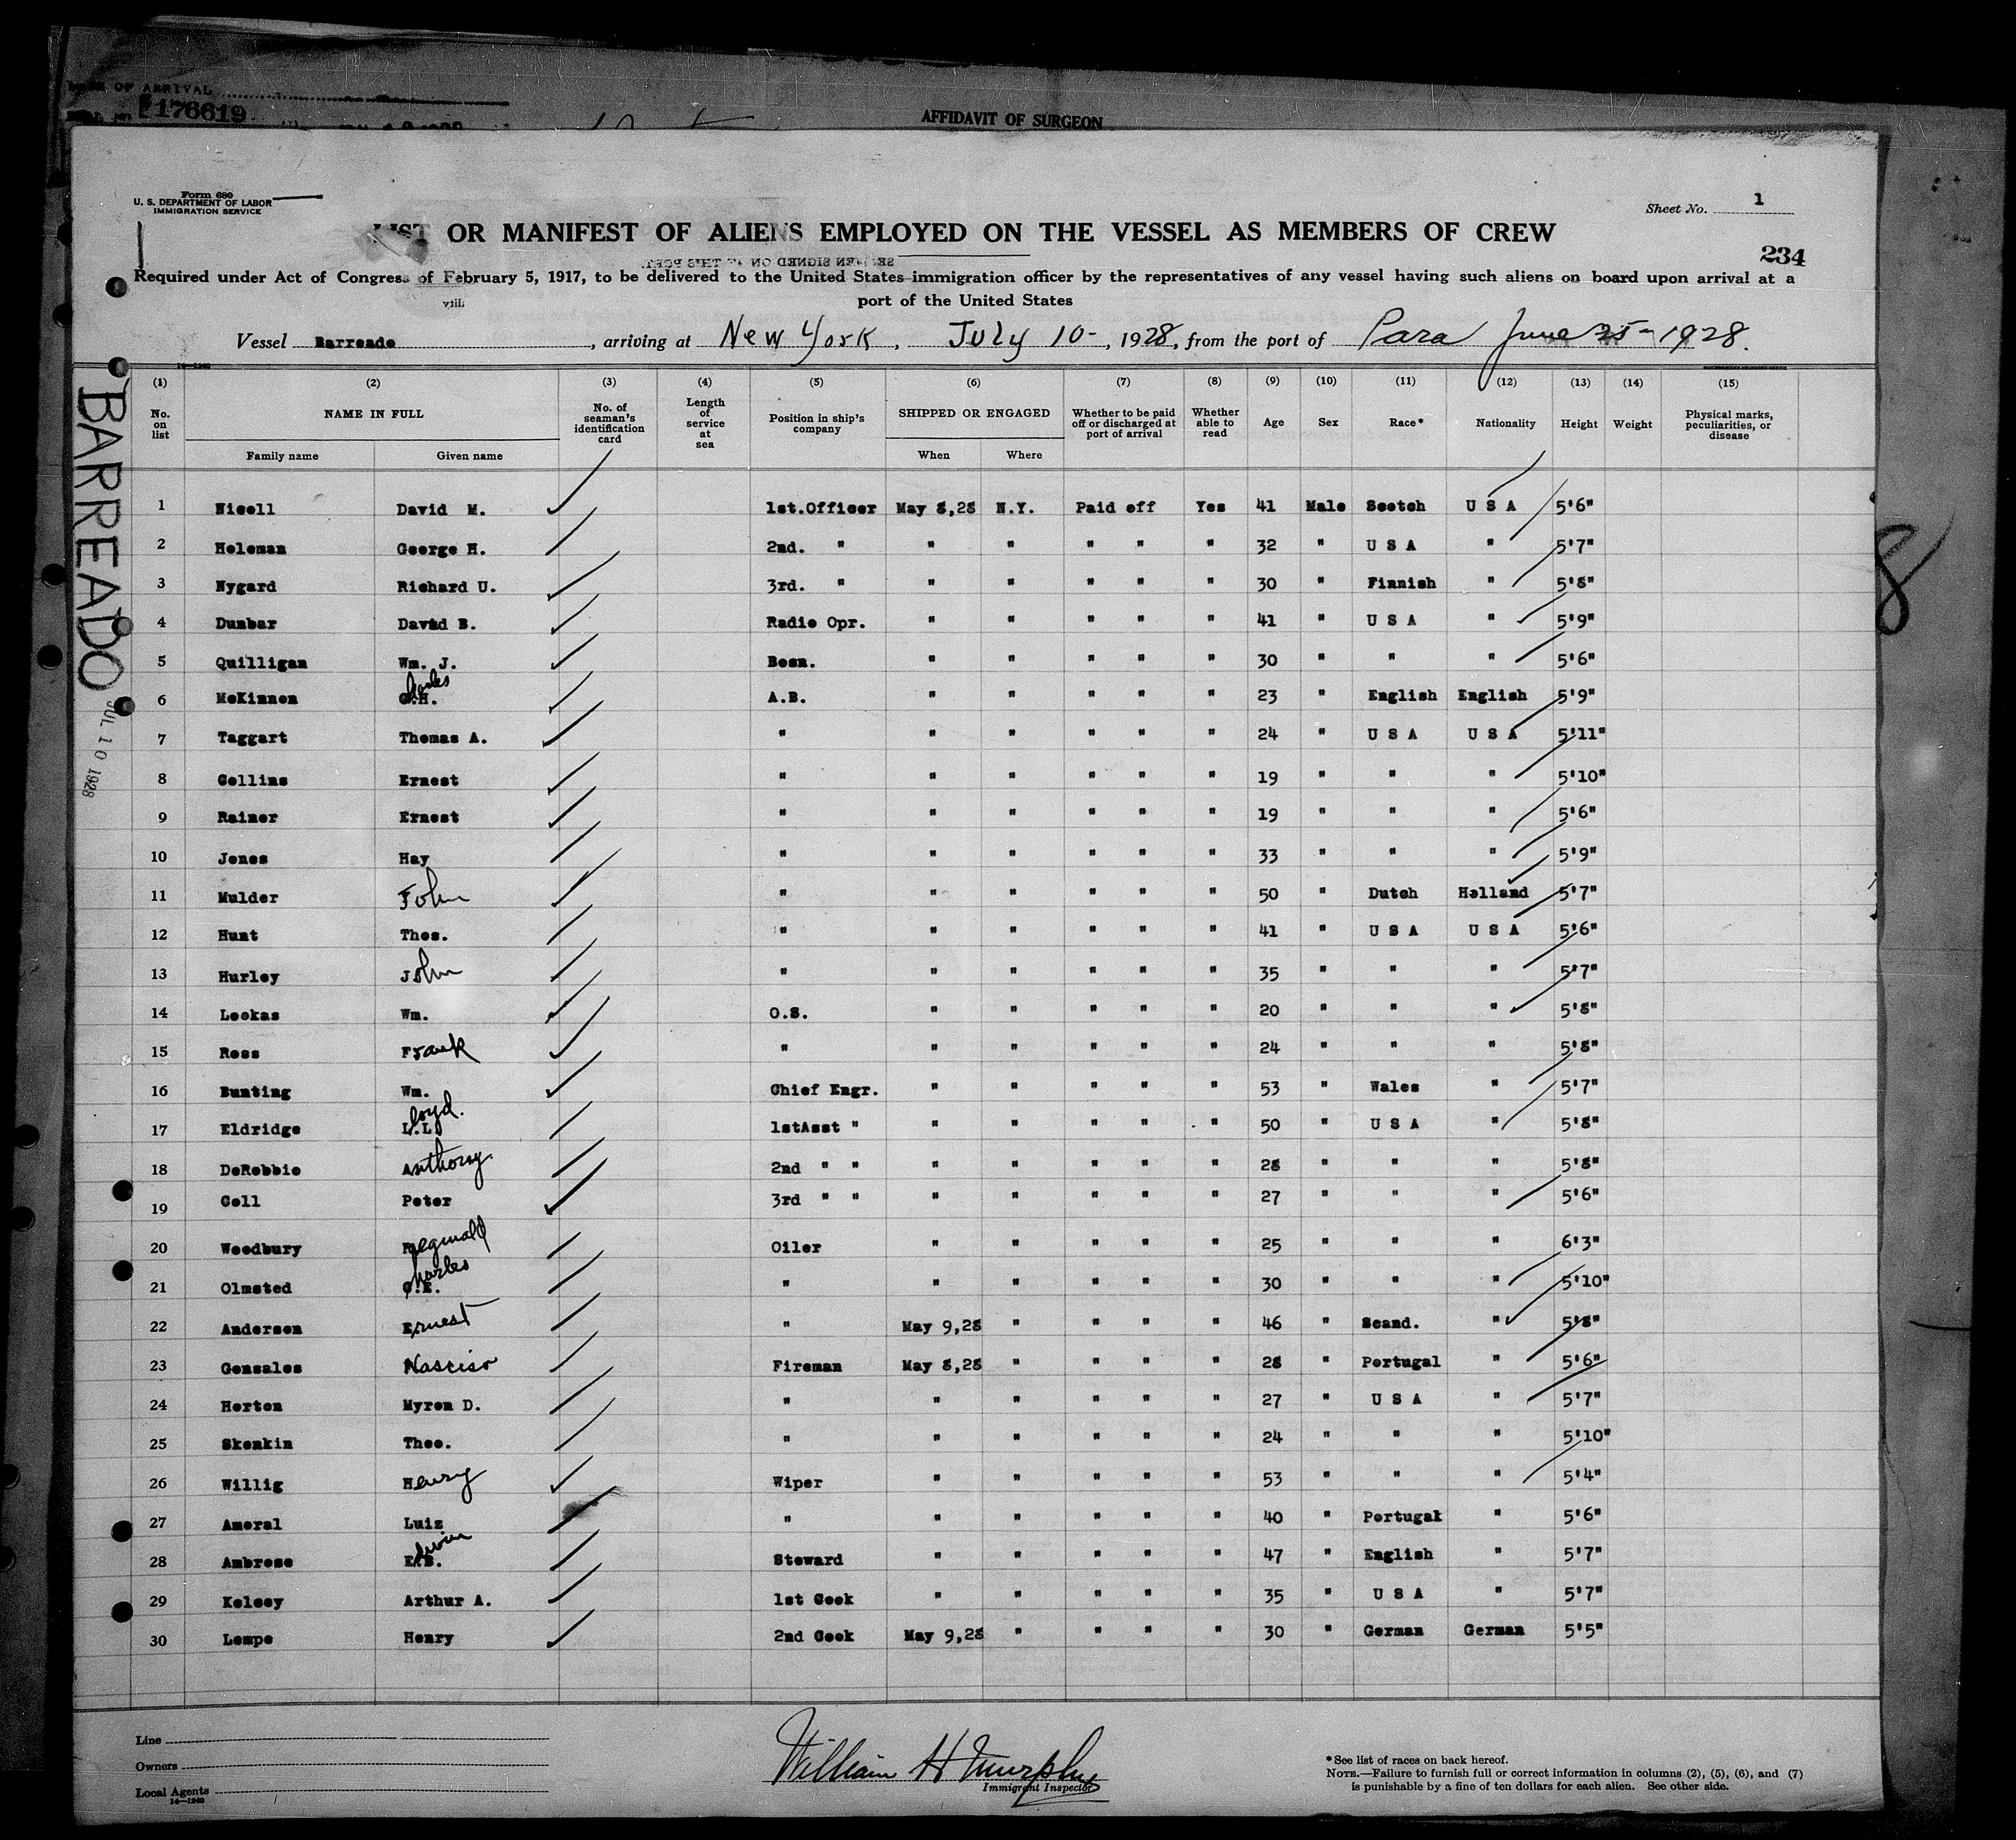 OF ARRIVAL
176619
AFFIDAVIT OF SURGEON
Form 680
U. S. DEPARTMENT OF LABOR
IMMIGRATION SERVICE
Sheet No. 1
LIST OR MANIFEST OF ALIENS EMPLOYED ON THE VESSEL AS MEMBERS OF CREW
234
SEAMEN SIGNED ON AT THIS PORT.
Required under Act of Congress of February 5, 1917, to be delivered to the United States immigration officer by the representatives of any vessel having such aliens on board upon arrival at a
port of the United States
Vessel Barreado, arriving at New York, July 10-, 1928, from the port of Para June 25-1928.
14-1240
(1) (2) (3) (4) (5) (6) (7) (8) (9) (10) (11) (12) (13) (14) (15)
No. on list NAME IN FULL No. of seaman's identification card Length of service at sea Position in ship's company SHIPPED OR ENGAGED Whether to be paid off or discharged at port of arrival Whether able to read Age Sex Race* Nationality Height Weight Physical marks, peculiarities, or disease
Family name Given name When Where
BARREADO
JUL 10 1928
8
1 Nicoll David M. 1st.Officer May 8,28 N.Y. Paid off Yes 41 Male Scotch U S A 5'6"
2 Holeman George H. 2nd. " " " " " " 32 " U S A " 5'7"
3 Nygard Richard U. 3rd. " " " " " " 30 " Finnish " 5'8"
4 Dunbar David B. Radio Opr. " " " " " 41 " U S A " 5'9"
5 Quilligan Wm. J. Bosn. " " " " " 30 " " " 5'6"
6 McKinnon C.H. Charles A.B. " " " " " 23 " English English 5'9"
7 Taggart Thomas A. " " " " " " 24 " U S A U S A 5'11"
8 Collins Ernest " " " " " " 19 " " " 5'10"
9 Rainer Ernest " " " " " " 19 " " " 5'6"
10 Jones Hay " " " " " " 33 " " " 5'9"
11 Mulder John " " " " " " 50 " Dutch Holland 5'7"
12 Hunt Thos. " " " " " " 41 " U S A U S A 5'6"
13 Hurley John " " " " " " 35 " " " 5'7"
14 Lookas Wm. O.S. " " " " " 20 " " " 5'8"
15 Ross Frank " " " " " " 24 " " " 5'8"
16 Bunting Wm. Chief Engr. " " " " " 53 " Wales " 5'7"
17 Eldridge L.L. Lloyd. 1stAsst " " " " " " 50 " U S A " 5'8"
18 DeRobbio Anthony 2nd " " " " " " " 28 " " " 5'8"
19 Coll Peter 3rd " " " " " " " 27 " " " 5'6"
20 Woodbury Reginald Oiler " " " " " 25 " " " 6'3"
21 Olmsted C.E. Charles " " " " " " 30 " " " 5'10"
22 Anderson Ernest " May 9,28 " " " " 46 " Scand. " 5'8"
23 Gonsales Nasciso Fireman May 8,28 " " " " 28 " Portugal " 5'6"
24 Horton Myron D. " " " " " " 27 " U S A " 5'7"
25 Skonkin Theo. " " " " " " 24 " " " 5'10"
26 Willig Henry Wiper " " " " " 53 " " " 5'4"
27 Amoral Luiz " " " " " " 40 " Portugal " 5'6"
28 Ambrose E.B. Edwin Steward " " " " " 47 " English " 5'7"
29 Kelsey Arthur A. 1st Cook " " " " " 35 " U S A " 5'7"
30 Lempe Henry 2nd Cook May 9,28 " " " " 30 " German German 5'5"
Line
Owners
Local Agents
14-1240
William H Murphy
Immigrant Inspector
*See list of races on back hereof.
NOTE.—Failure to furnish full or correct information in columns (2), (5), (6), and (7)
is punishable by a fine of ten dollars for each alien. See other side.